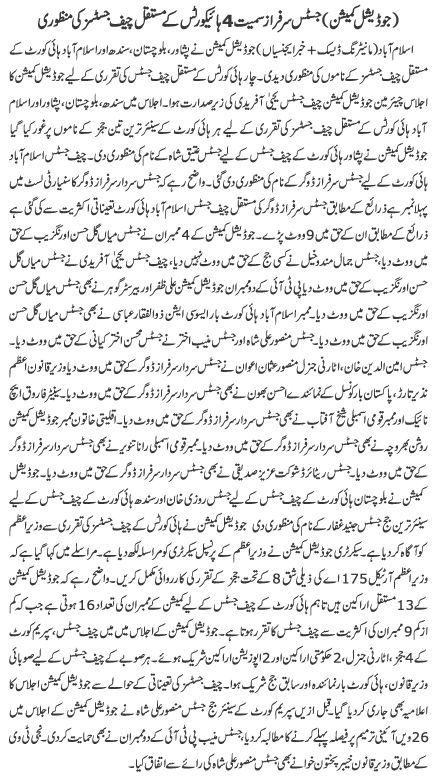 (جوڈیشل کمیشن) جسٹس سرفراز سمیت 4 ہائیکورٹس کے مستقل چیف جسٹسز کی منظوری
اسلام آباد (مانیٹرنگ ڈیسک + خبر ایجنسیاں) جوڈیشل کمیشن نے پشاور، بلوچستان، سندھ اور اسلام آباد ہائی کورٹ کے
مستقل چیف جسٹسز کے ناموں کی منظوری دیدی۔ چار ہائی کورٹس کے مستقل چیف جسٹسز کی تقرری کے لیے جوڈیشل کمیشن کا
اجلاس چیئرمین جوڈیشل کمیشن چیف جسٹس یحییٰ آفریدی کی زیر صدارت ہوا۔ اجلاس میں سندھ، بلوچستان، پشاور اور اسلام
آباد ہائی کورٹس کے مستقل چیف جسٹسز کی تقرری کے لیے ہر ہائی کورٹ کے سینئر ترین تین ججز کے ناموں پر غور کیا گیا
جوڈیشل کمیشن نے پشاور ہائی کورٹ کے چیف جسٹس کے لیے جسٹس عتیق شاہ کے نام کی منظوری دی۔ چیف جسٹس اسلام آباد
ہائی کورٹ کے لیے جسٹس سرفراز ڈوگر کے نام کی منظوری دی گئی۔ واضح رہے کہ جسٹس سردار سرفراز ڈوگر کا سنیارٹی لسٹ میں
پہلا نمبر ہے ذرائع کے مطابق جسٹس سردار سرفراز ڈوگر کی مستقل چیف جسٹس اسلام آباد ہائی کورٹ تعیناتی اکثریت سے کی گئی ہے
ذرائع کے مطابق ان کے حق میں 9 ووٹ پڑے۔ جوڈیشل کمیشن کے 4 ممبران نے جسٹس میاں گل حسن اورنگزیب کے حق
میں ووٹ دیا، جسٹس جمال مندوخیل نے کسی جج کے حق میں ووٹ نہیں دیا، چیف جسٹس یحییٰ آفریدی نے جسٹس میاں گل
حسن اورنگزیب کے حق میں ووٹ دیا پی ٹی آئی کے دو ممبران جوڈیشل کمیشن علی ظفر اور بیرسٹر گوہر نے بھی جسٹس میاں گل حسن
اورنگزیب کے حق میں ووٹ دیا۔ ممبر اسلام آباد ہائی کورٹ بار ایسوسی ایشن ذوالفقار عباسی نے بھی جسٹس میاں گل حسن
اورنگزیب کے حق میں ووٹ دیا۔ جسٹس منصور علی شاہ اور جسٹس منیب اختر نے جسٹس محسن اختر کیانی کے حق میں ووٹ دیا۔
جسٹس امین الدین خان، اٹارنی جنرل منصور عثمان اعوان نے جسٹس سرفراز ڈوگر کے حق میں ووٹ دیا وزیر قانون اعظم
نذیر تارڑ، پاکستان بار کونسل کے نمائندے احسن بھون نے بھی جسٹس سرفراز ڈوگر کے حق میں ووٹ دیا۔ سینیٹر فاروق ایچ
نائیک اور ممبر قومی اسمبلی شیخ آفتاب نے بھی جسٹس سرفراز ڈوگر کے حق میں ووٹ دیا۔ اقلیتی خاتون ممبر جوڈیشل کمیشن
روشن بھروچہ نے بھی جسٹس سردار سرفراز ڈوگر کے حق میں ووٹ دیا۔ ممبر قومی اسمبلی رانا تنویر نے بھی جسٹس سردار سرفراز ڈوگر
کے حق میں ووٹ دیا۔ جسٹس ریٹائرڈ شوکت عزیز صدیقی نے بھی جسٹس سردار سرفراز ڈوگر کے حق میں ووٹ دیا۔ جوڈیشل
کمیشن نے بلوچستان ہائی کورٹ کے چیف جسٹس کے لیے جسٹس روزی خان اور سندھ ہائی کورٹ کے چیف جسٹس کے لیے
سینئر ترین جج جسٹس جنید غفار کے نام کی منظوری دی جوڈیشل کمیشن نے ہائی کورٹس کے چیف جسٹسز کی تقرری سے وزیراعظم
کو آگاہ کر دیا ہے۔ سیکرٹری جوڈیشل کمیشن نے وزیراعظم کے پرنسپل سیکرٹری کو مراسلہ لکھ دیا ہے۔ مراسلے میں کہا گیا ہے کہ
وزیراعظم آرٹیکل 175 اے کی ذیلی شق 8 کے تحت ججز کے تقرر کی کارروائی مکمل کریں۔ واضح رہے کہ جوڈیشل کمیشن
کے 13 مستقل اراکین ہیں تاہم ہائی کورٹ کے چیف جسٹس کے لیے کمیشن کے ممبران کی تعداد 16 ہوتی ہے جب کہ کم
از کم 9 ممبران کی اکثریت سے چیف جسٹس کا تقرر ہوتا ہے۔ جوڈیشل کمیشن کے اجلاس میں میں چیف جسٹس، سپریم کورٹ
کے 4 ججز، اٹارنی جنرل، 2 حکومتی اراکین اور 2 اپوزیشن اراکین شریک ہوئے۔ ہر صوبے کے چیف جسٹس کے لیے صوبائی
وزیر قانون، ہائی کورٹ بار نمائندہ اور سابق جج شریک ہوا۔ چیف جسٹسز کی تعیناتی کے حوالے سے جوڈیشل کمیشن اجلاس کا
اعلامیہ بھی جاری کر دیا گیا۔ قبل ازیں سپریم کورٹ کے سینئر جج جسٹس منصور علی شاہ نے جوڈیشل کمیشن کے اجلاس میں
26 ویں آئینی ترمیم پر فیصلہ پہلے کرنے کا مطالبہ کر دیا، جسٹس منیب پی ٹی آئی کے دو ممبران نے بھی حمایت کر دی۔ نجی ٹی وی
کے مطابق وزیر قانون خیبر پختون خوا نے بھی جسٹس منصور علی شاہ کی رائے سے اتفاق کیا۔